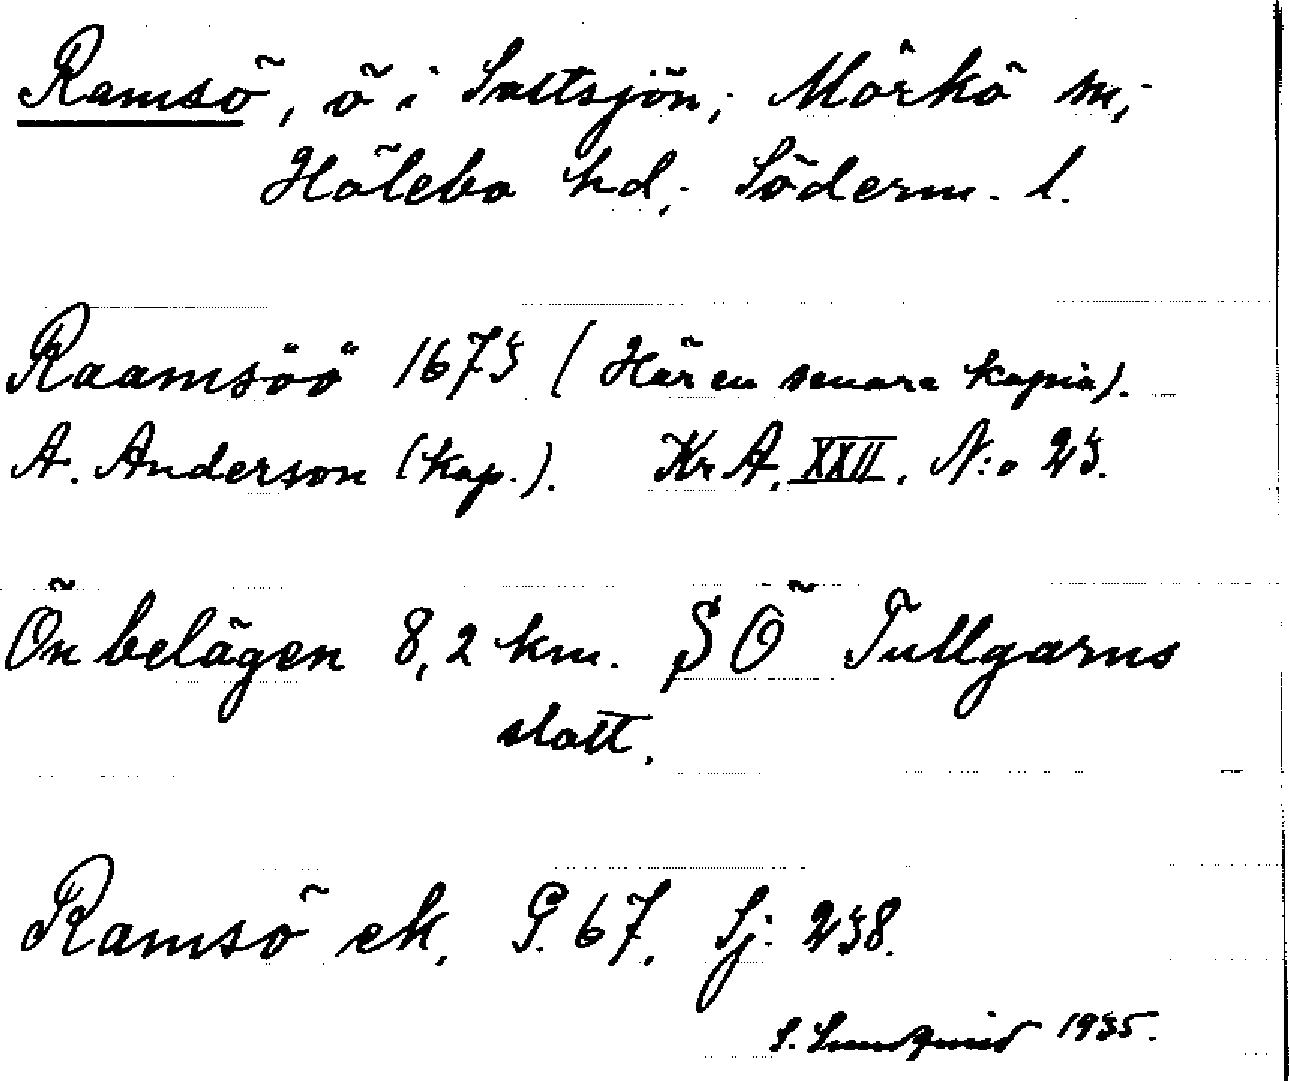 Ramsö, ö i Saltsjön; Mörkö sn;
Hölebo hd; Söderm. l.
Raamsöö 1673 (Här en senare kopia).
A. Anderson (kop.). Kr A. XXII. N:o 23.
Ön belägen 8,2 km. S Ö Tullgarns
slott.
Ramsö ek. G. 67. Sj: 238.
S. Sundqvist 1935.